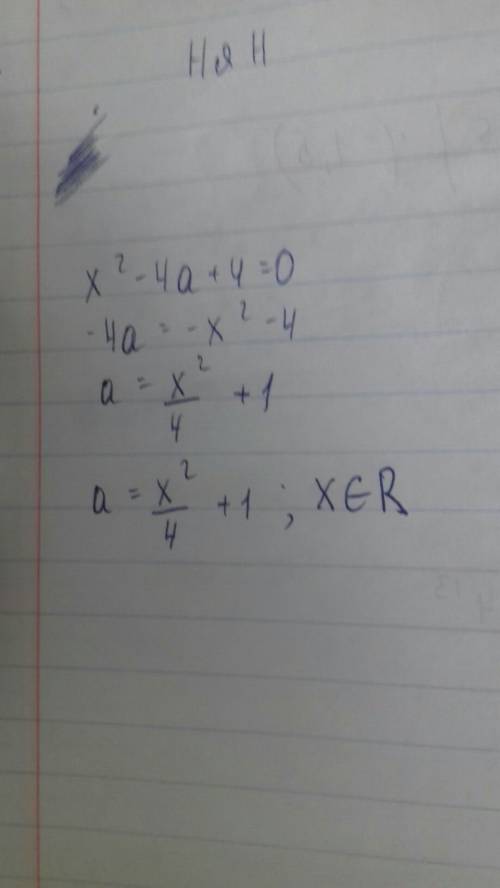 x² - 4a + 4 = 0
-4a = -x² - 4
a = x²/4 + 1
a = x²/4 + 1 ; x∈R